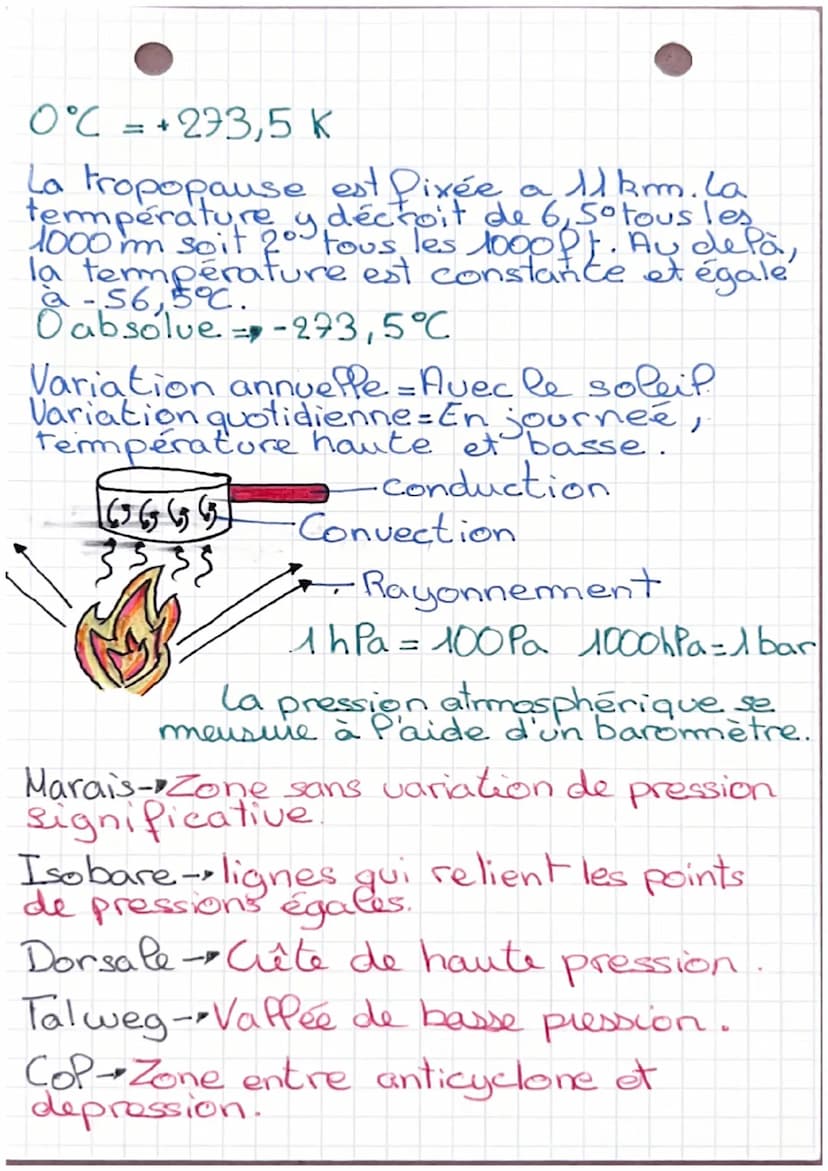 0°C = +273,5 K
La tropopause est fixée a 11 km. La
température y décroit de 6,5° tous les
1000 m soit 2° tous les 1000 ft. Au delà,
la température est constante et égale
à -56,5°C.
0 absolue => -273,5°C
Variation annuelle = Avec le soleil
Variation quotidienne = En journeé,
température haute et basse.
conduction
Convection
Rayonnement
1 hPa = 100 Pa 1000 hPa = 1 bar
La pression atmosphérique se
meusure à l'aide d'un baromètre.
Marais → Zone sans variation de pression
significative.
Isobare → lignes qui relient les points
de pressions égales.
Dorsale → Crête de haute pression.
Talweg → Vallée de basse pression.
Col → Zone entre anticyclone et
depression.